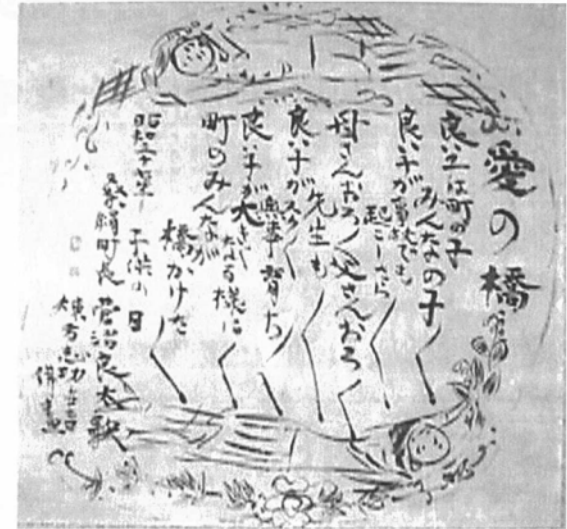 愛の橋
良い子は町の子
みんなの子
良い子が事故でも
起こしたら
母さんおろ〳〵父さんおろ〳〵
先生も
良い子がスク〳〵
無事育ち
良い子が大きく
なる様に
町のみんなが
橋かけた
昭和 年 子供の日
町長 菅治良太
棟方志功